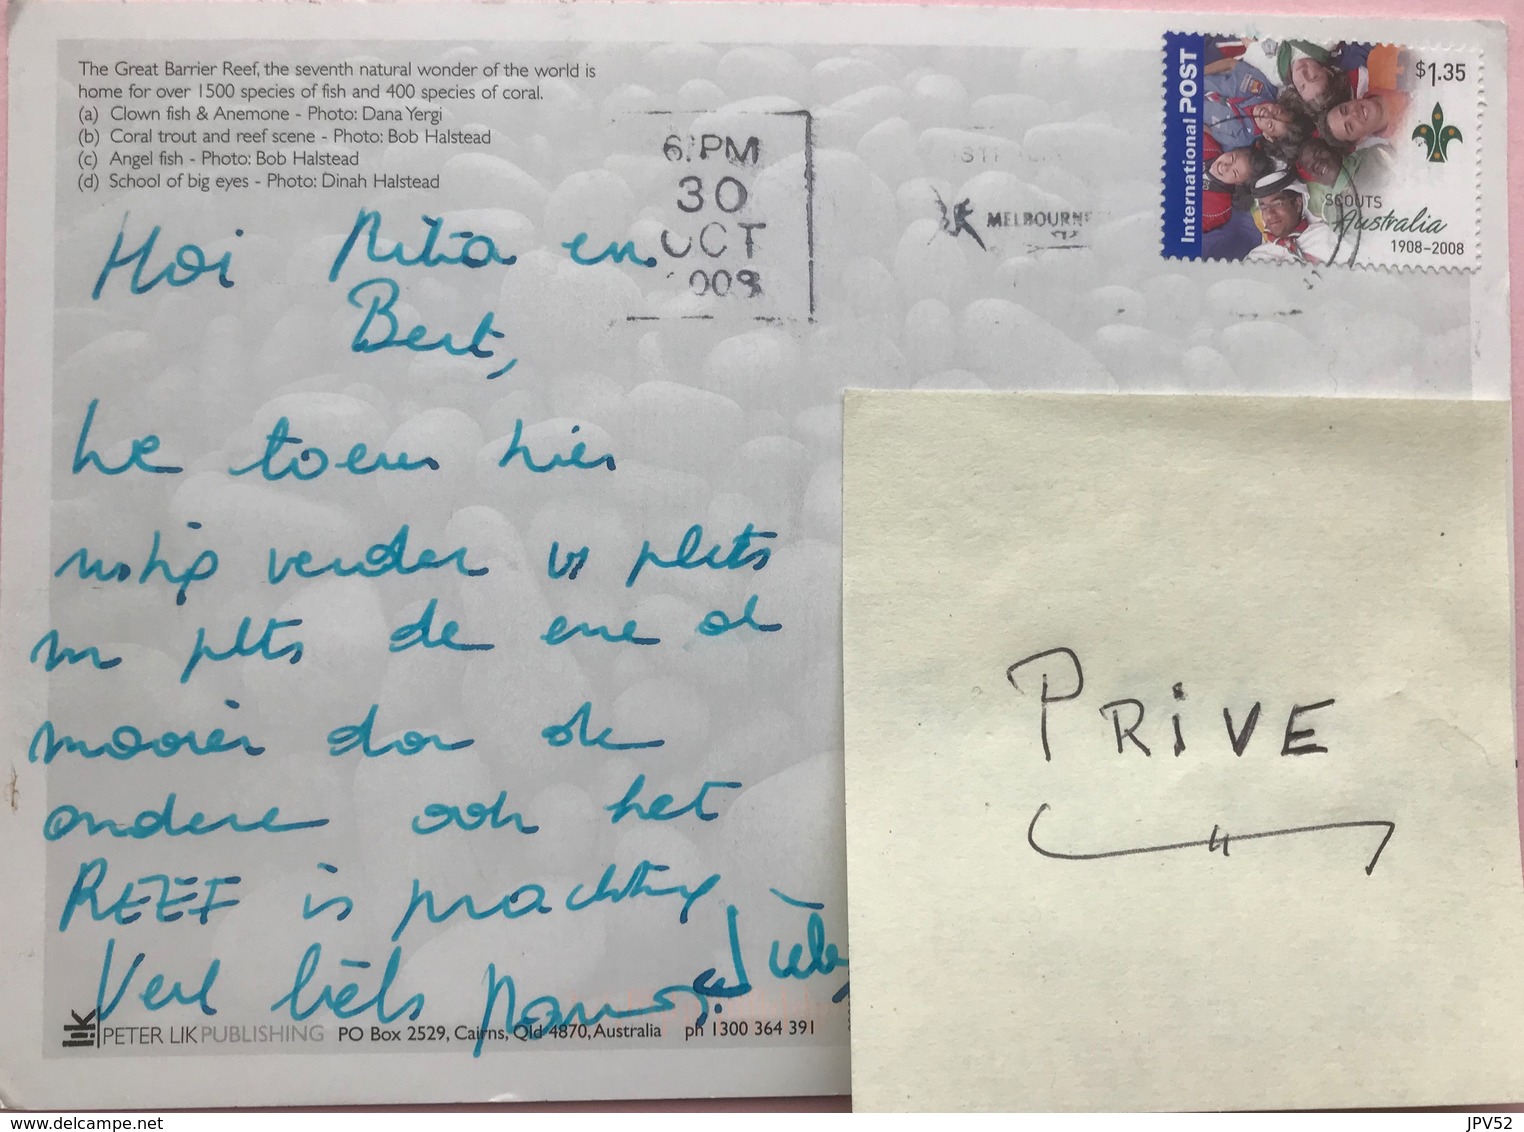 The Great Barrier Reef, the seventh natural wonder of the world is
home for over 1500 species of fish and 400 species of coral.
(a) Clown fish & Anemone - Photo: Dana Yergi
(b) Coral trout and reef scene - Photo: Bob Halstead
(c) Angel fish - Photo: Bob Halstead
(d) School of big eyes - Photo: Dinah Halstead
6 PM
30
OCT
MELBOURNE
International POST
$1.35
SCOUTS
Australia
1908-2008
Hoi Rita en
Bert,
We toeren hier
rustig verder v plets
nr plts de ene al
mooier dan de
andere ook het
REEF is prachtig
Veel liefs
PRIVE
lik PETER LIK PUBLISHING PO Box 2529, Cairns, Qld 4870, Australia ph 1300 364 391
www.delcampe.net
JPV52